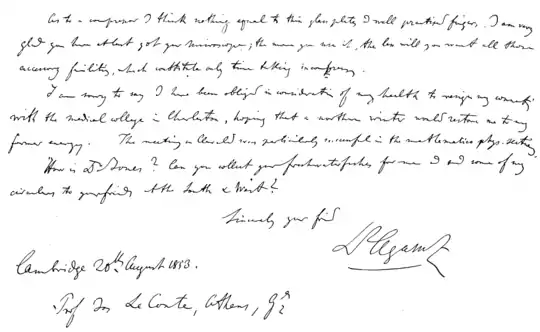 As to a compressor I think nothing equal to thin glass plates & well practised fingers. I am very
glad you have at last got your microscope; the more you use it, the less will you want all those
accessory facilities, which constitute only time taking
I am sorry to say I have been obliged in consideration of my health to resign my connection
with the medical college in Charleston, hoping that a northern winter would restore me to my
former energy. The meeting in Cleveland was particularly successful in the mathematico phys. section.
How is Dr Jones? Can you collect your freshwater fishes for me and send some of my
circulars to your friends at the South & West?
Sincerely your frd
L. Agassiz
Cambridge 20th August 1853.
Prof Jos Le Conte, Athens, Ga